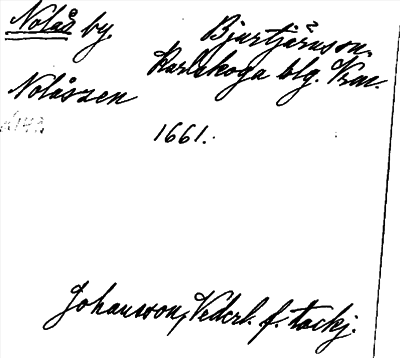 Nolås by Bjurtjärnssn.
Karlskoga blg. Vrm.
Nolåszen
1661.
Johansson, Vederl. f. tackj.